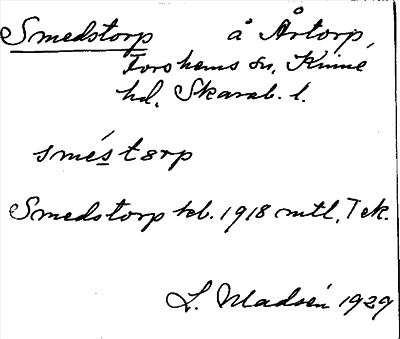 Smedstorp å Årtorp,
Forshems sn, Kinne
hd, Skarab. l.
sméstərp
Smedstorp kb. 1918 mtl, Tek.
L. Madsén 1929